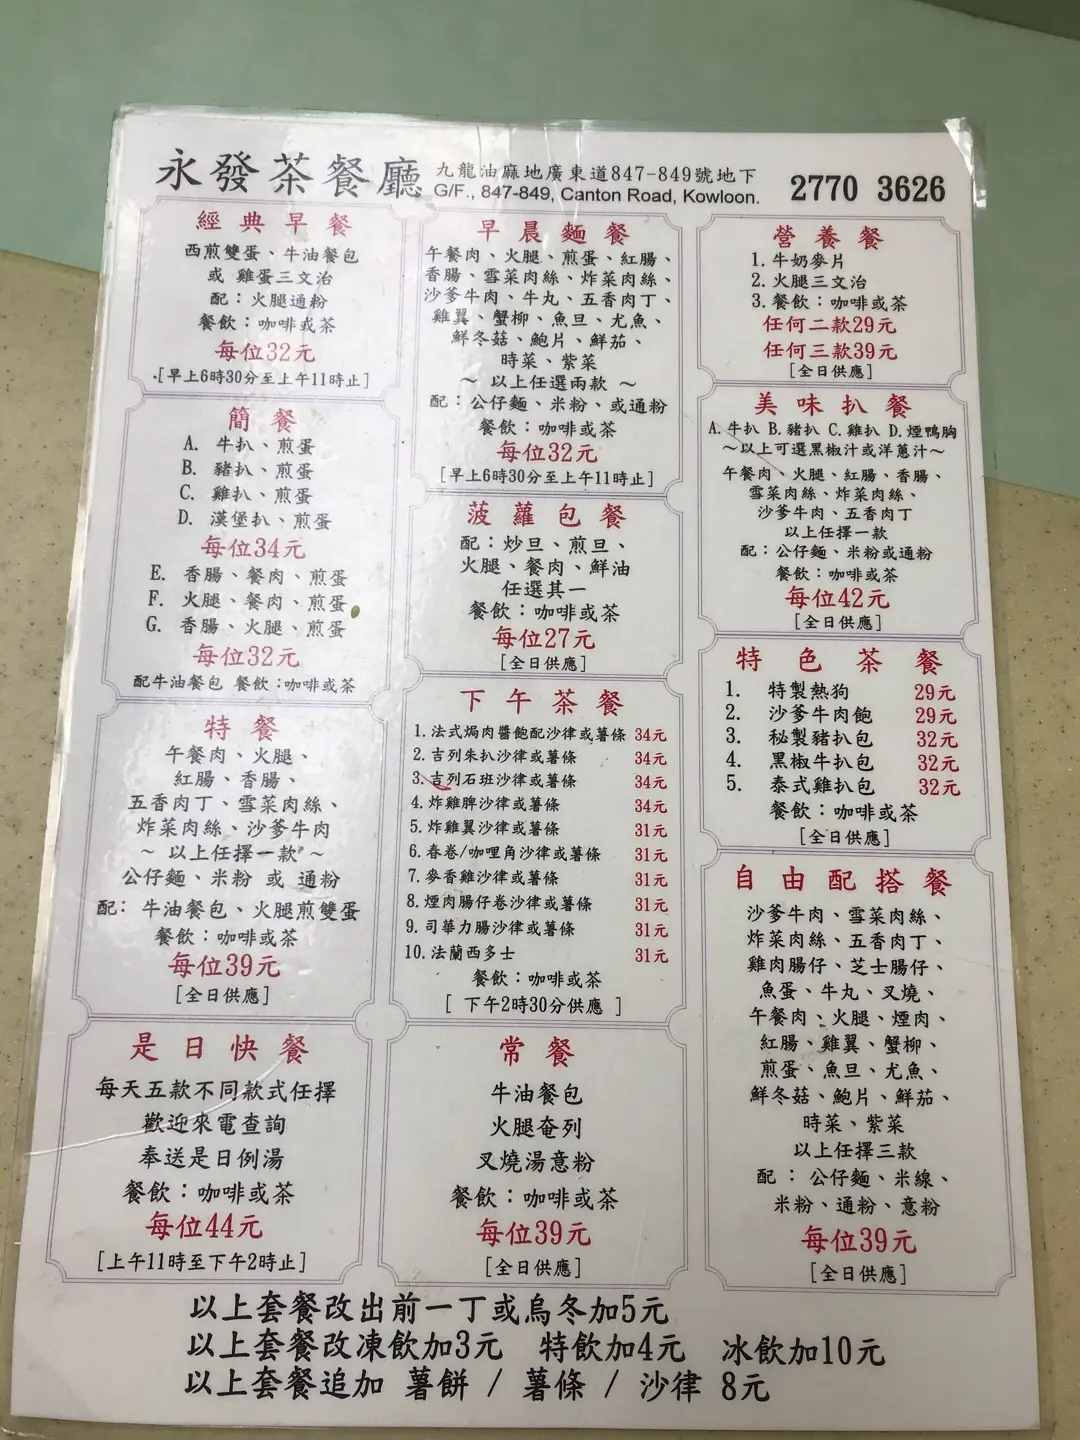 永發茶餐廳
九龍油麻地廣東道847-849號地下
G/F., 847-849, Canton Road, Kowloon.
2770 3626
經典早餐
西煎雙蛋、牛油餐包
或 雞蛋三文治
配：火腿通粉
餐飲：咖啡或茶
每位32元
[早上6時30分至上午11時止]
簡餐
A. 牛扒、煎蛋
B. 豬扒、煎蛋
C. 雞扒、煎蛋
D. 漢堡扒、煎蛋
每位34元
E. 香腸、餐肉、煎蛋
F. 火腿、餐肉、煎蛋
G. 香腸、火腿、煎蛋
每位32元
配牛油餐包 餐飲：咖啡或茶
特餐
午餐肉、火腿、
紅腸、香腸、
五香肉丁、雪菜肉絲、
炸菜肉絲、沙爹牛肉
～ 以上任擇一款 ～
公仔麵、米粉 或 通粉
配： 牛油餐包、火腿煎雙蛋
餐飲：咖啡或茶
每位39元
[全日供應]
是日快餐
每天五款不同款式任擇
歡迎來電查詢
奉送是日例湯
餐飲：咖啡或茶
每位44元
[上午11時至下午2時止]
早晨麵餐
午餐肉、火腿、煎蛋、紅腸、
香腸、雪菜肉絲、炸菜肉絲、
沙爹牛肉、牛丸、五香肉丁、
雞翼、蟹柳、魚旦、尤魚、
鮮冬菇、鮑片、鮮茄、
時菜、紫菜
～ 以上任選兩款 ～
配：公仔麵、米粉、或通粉
餐飲：咖啡或茶
每位32元
[早上6時30分至上午11時止]
菠蘿包餐
配：炒旦、煎旦、
火腿、餐肉、鮮油
任選其一
餐飲：咖啡或茶
每位27元
[全日供應]
下午茶餐
1. 法式焗肉醬飽配沙律或薯條 34元
2. 吉列朱扒沙律或薯條 34元
3. 吉列石班沙律或薯條 34元
4. 炸雞脾沙律或薯條 34元
5. 炸雞翼沙律或薯條 31元
6. 春卷/咖哩角沙律或薯條 31元
7. 麥香雞沙律或薯條 31元
8. 煙肉腸仔卷沙律或薯條 31元
9. 司華力腸沙律或薯條 31元
10. 法蘭西多士 31元
餐飲：咖啡或茶
[ 下午2時30分供應 ]
常餐
牛油餐包
火腿奄列
叉燒湯意粉
餐飲：咖啡或茶
每位39元
[全日供應]
營養餐
1. 牛奶麥片
2. 火腿三文治
3. 餐飲：咖啡或茶
任何二款29元
任何三款39元
[全日供應]
美味扒餐
A. 牛扒 B. 豬扒 C. 雞扒 D. 煙鴨胸
～以上可選黑椒汁或洋蔥汁～
午餐肉、火腿、紅腸、香腸、
雪菜肉絲、炸菜肉絲、
沙爹牛肉、五香肉丁
以上任擇一款
配：公仔麵、米粉或通粉
餐飲：咖啡或茶
每位42元
[全日供應]
特色茶餐
1. 特製熱狗 29元
2. 沙爹牛肉飽 29元
3. 秘製豬扒包 32元
4. 黑椒牛扒包 32元
5. 泰式雞扒包 32元
餐飲：咖啡或茶
[全日供應]
自由配搭餐
沙爹牛肉、雪菜肉絲、
炸菜肉絲、五香肉丁、
雞肉腸仔、芝士腸仔、
魚蛋、牛丸、叉燒、
午餐肉、火腿、煙肉、
紅腸、雞翼、蟹柳、
煎蛋、魚旦、尤魚、
鮮冬菇、鮑片、鮮茄、
時菜、紫菜
以上任擇三款
配 ： 公仔麵、米線、
米粉、通粉、意粉
每位39元
[全日供應]
以上套餐改出前一丁或烏冬加5元
以上套餐改凍飲加3元 特飲加4元 冰飲加10元
以上套餐追加 薯餅 / 薯條 / 沙律 8元